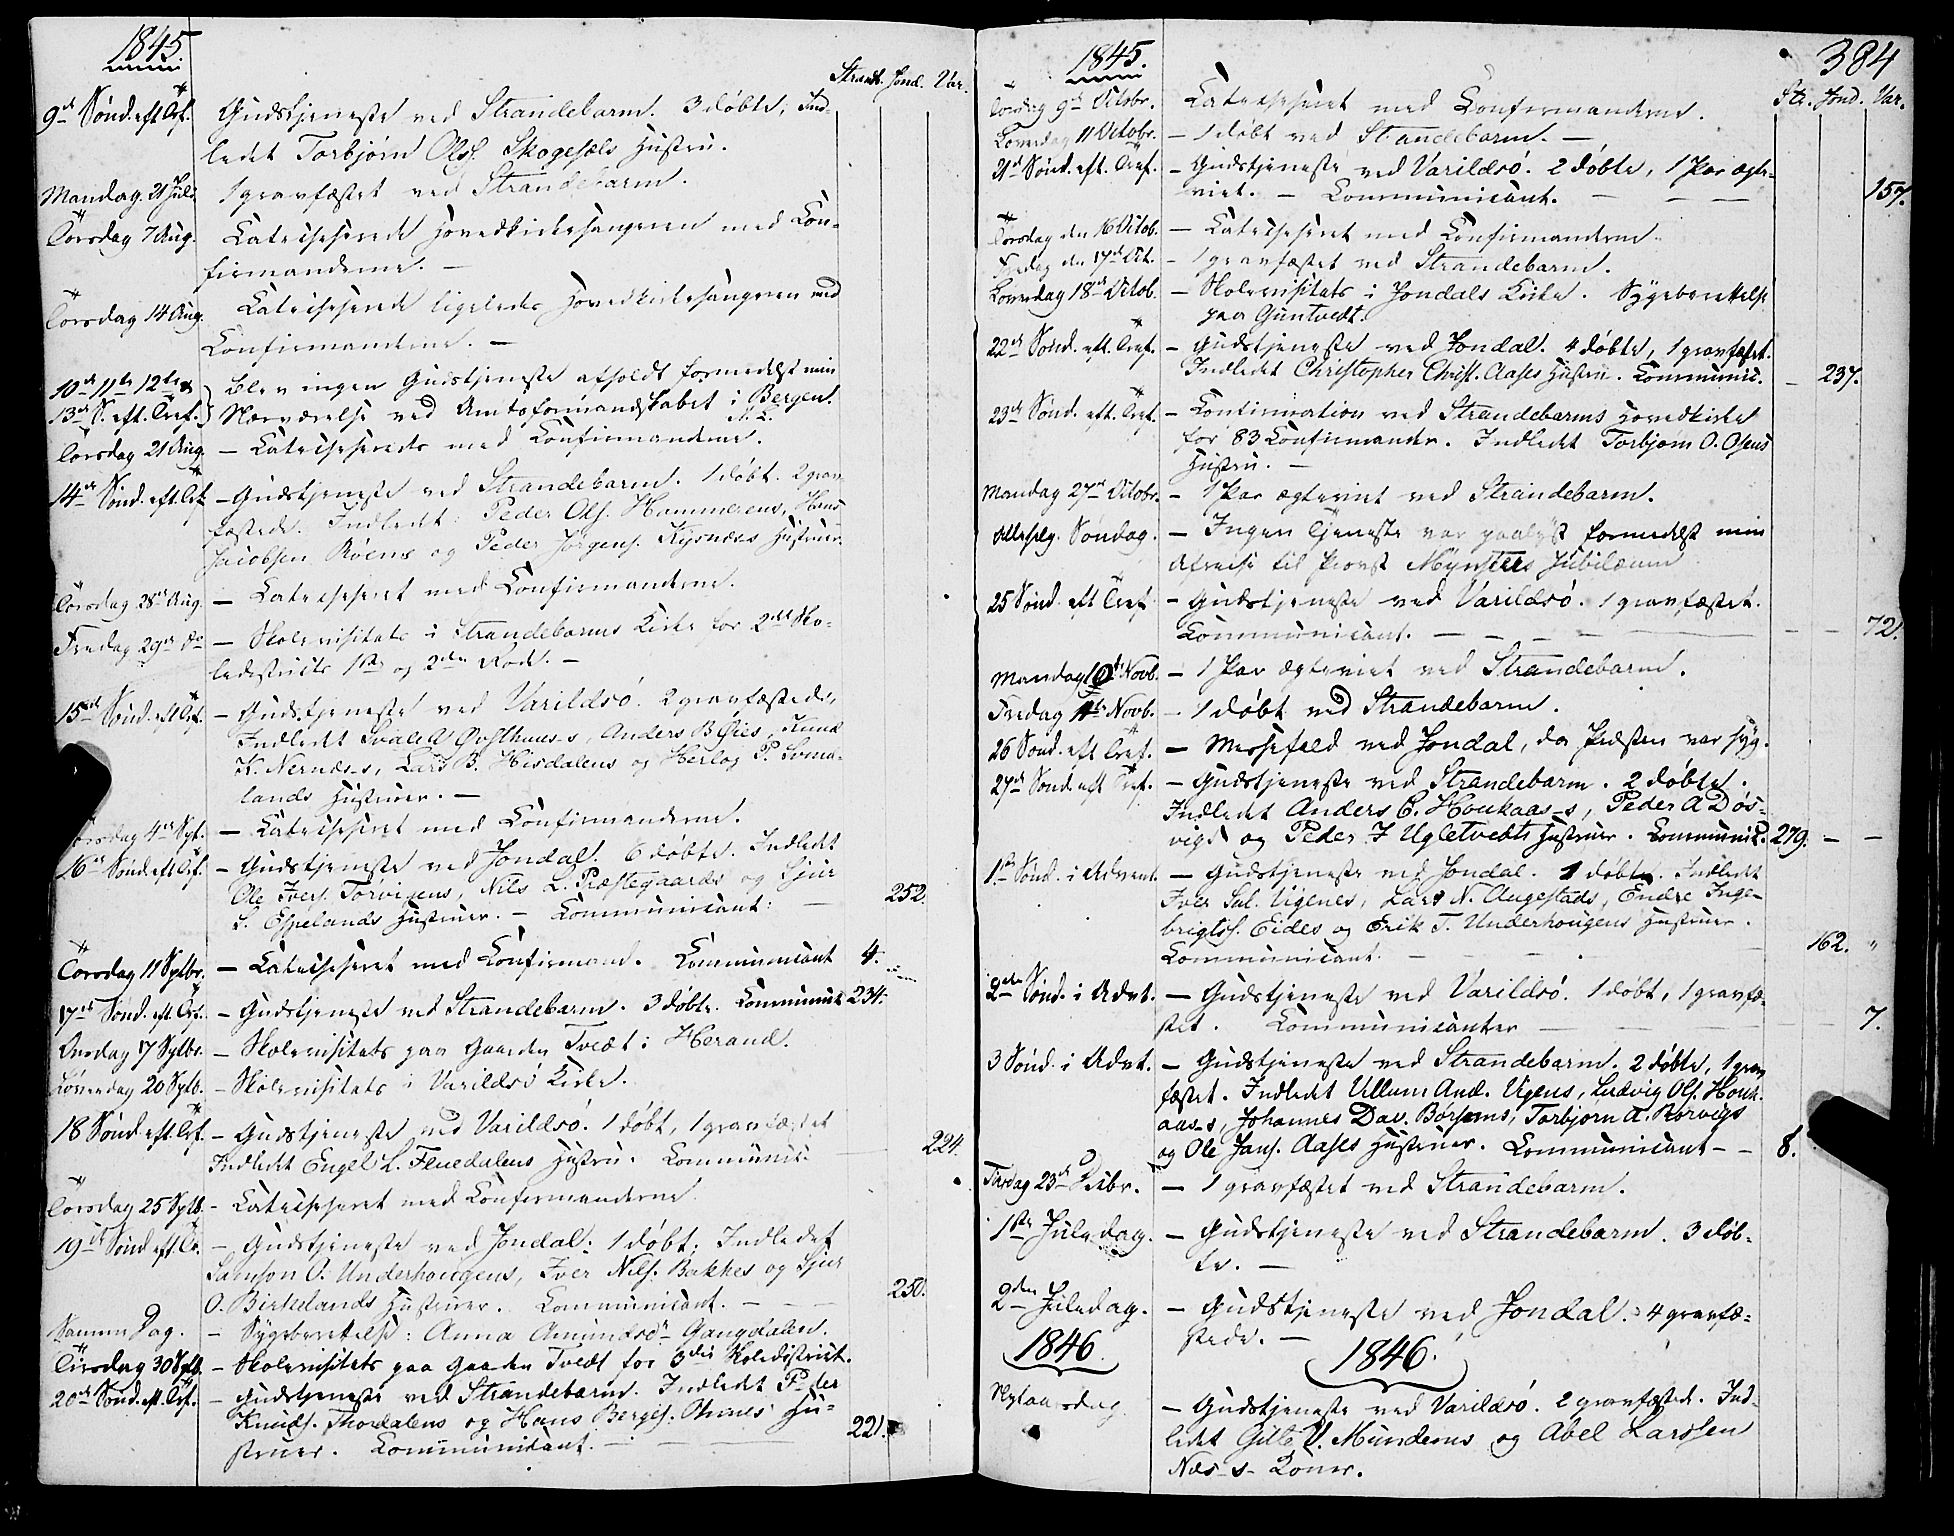 1845.
Strandb. Jond. Var.
9de Sønd. eft. Tref. Gudstjeneste ved Strandebarm. 3 døbte, Ind-
ledet Torbjørn Ols. Skogesæls Hustru.
Mandag 21 Juli 1 gravfæstet ved Strandebarm.
Torsdag 7 Aug. Catechiserede Hovedkirkesangeren med Con-
firmanderne. —
Torsdag 14 Aug. Catechiserede ligeledes Hovedkirkesangeren med
Confirmanderne. —
10de 11te 12te & Blev ingen Gudstjeneste afholdt formedelst min
13de S. eft. Tref. Nærværelse ved Amtsformandskabet i Bergen.
Torsdag 21 Aug. — Catechiserede med Confirmanderne.
14de Sønd. eft. Tref. — Gudstjeneste ved Strandebarm. 1 døbt. 2 grav-
fæstede. Indledet: Peder Ols. Hammerens, Hans
Jacobsen Röens og Peder Jørgens. Kysnæs Hustruer.
Torsdag 28de Aug. — Catechiseret med Confirmanderne.
Fredag 29de do — Skolevisitats i Strandebarms Kirke for 2det Sko-
ledistricts 1ste og 2den Rode. —
15de Sønd. eft. Tref. — Gudstjeneste ved Varildsø. 2 gravfæstede,
Indledet Svale A Øvsthuus-s, Anders B Øies, Knud
K. Nernæs-s, Lars B. Hisdalens og Herlog P. Soma-
lands Hustruer. —
Torsdag 4de Spt. — Catechiseret med Confirmanderne.
16de Sønd. eft. Tref. — Gudstjeneste ved Jondal. 6 døbte. Indledet
Ole Ivers. Torvigens, Nils L. Præstegaards og Sjur
L. Espelands Hustruer. — Communicant: — 252.
Torsdag 11 Sptbr. — Catechiseret med Confirmand. Communicant 4.
17de Sønd. eft. Tref. — Gudstjeneste ved Strandebarm. 3 døbte. Communicant 234.
Onsdag 17 Sptbr. — Skolevisitats paa Gaarden Tvedt i Herand.
Løverdag 20 Sptb. — Skolevisitats i Varildsö Kirke.
18 Sønd. eft. Tref. — Gudstjeneste ved Varildsö. 1 døbt, 1 gravfæstet
Indledet Engel L. Fluedalens Hustru. Communic. — 224.
Torsdag 25 Sptb. — Catechiseret med Confirmanderne.
19de Sønd. eft. Tr. — Gudstjeneste ved Jondal: 1 døbt: Indledet
Samson O. Underhougens, Iver Nils. Bakkes og Sjur
O. Birkelands Hustruer. Communicant. — 250.
Samme Dag. — Sygeberettelse: Anna Amundsdr Gangdalen.
Tirsdag 30 Sptb. — Skolevisitats paa Gaarden Tvedt for 3die Skoledistrict.
20de Sønd. eft. Tref. — Gudstjeneste ved Strandebarm. Indledet Peder
Knuds. Thordalens og Hans Berges. Hu-
struer. Communicant. — 221.
384
1845.
Str. Jond. Var.
Torsdag 9de Octobr. Catechiseret med Confirmanderne.
Løverdag 11 Octobr. — 1 døbt ved Standebarm. —
21de Sønd. eft. Tref. — Gudstjeneste ved Varildsö. 2 døbte, 1 Par ægte-
viet. — Communicant. — — — 157.
Torsdag den 16 Octob. — Catechiseret med Confirmanderne.
Fredag den 17de Oct. — 1 gravfæstet ved Strandebarm.
Løverdag 18de Octob. — Skolevisitats i Jondals Kirke. Sygeberettelse
paa Guntvedt.
22de Sønd. eft. Tref. — Gudstjeneste ved Jondal. 4 døbte, 1 gravfæst.
Indledet Christopher Christ. Aases Hustru. Communic. — 237.
23de Sønd. eft. Tref. — Confirmation ved Strandebarms Hovedkirke
for 83 Confirmander. Indledet Torbjørn O. Osens
Hustru. —
Mandag 27de Octobr. — 1 Par ægteviet ved Strandebarm.
Allehelg. Søndag. — Ingen Tjeneste var paalyst formedelst min
Afreise til Provst Mynsters Jubilæum
25 Sønd. eft Tref. — Gudstjeneste ved Varildsö. 1 gravfæstet.
Communicant. — — — 72.
Mandag 10de Novb. — 1 Par ægteviet ved Strandebarm.
Fredag 14de Novb. — 1 døbt ved Strandebarm.
26 Sønd. eft Tref. — Messefald ved Jondal, da Præsten var syg.
27de Sønd. eft Tref. — Gudstjeneste ved Strandebarm. 2 døbte.
Indledet Anders C. Houkaas-s, Peder A Døs-
vigs og Peder J Ugletvedts Hustruer. Communic. 279. — —
1ste Sønd. i Advent. — Gudstjeneste ved Jondal. 1 døbt. Indledet
Iver Sal. Vigenes, Lars N. Augestads, Endre Inge-
brigts. Eides og Erik T. Underhougens Hustruer.
Communicant. — 162. "
2den Sønd. i Advt. — Gudstjeneste ved Varildsö. 1 døbt, 1 gravfæ-
stet. Communicanter — 7.
3 Sønd. i Advt. — Gudstjeneste ved Strandebarm. 2 døbte, 1 grav-
fæstet. Indledet Villum And. Vigens, Ludvig Ols. Houk-
aas-s, Johannes Dav. Børsems, Torbjørn A. Rørvigs
og Ole Jans. Aases Hustruer. Communicant — — 8.
Tirsdag 23de Decbr. — 1 gravfæstet ved Strandebarm.
1ste Juledag. — Gudstjeneste ved Strandebarm. 3 døb-
te. —
2den Juledag. — Gudstjeneste ved Jondal. 4 gravfæ-
stede. —
1846. 1846.
Nytaarsdag — Gudstjeneste ved Varildsö. 2 gravfæstede. Ind-
ledet Gitle V. Mundems og Abel Larssen
Næs-s Koner.